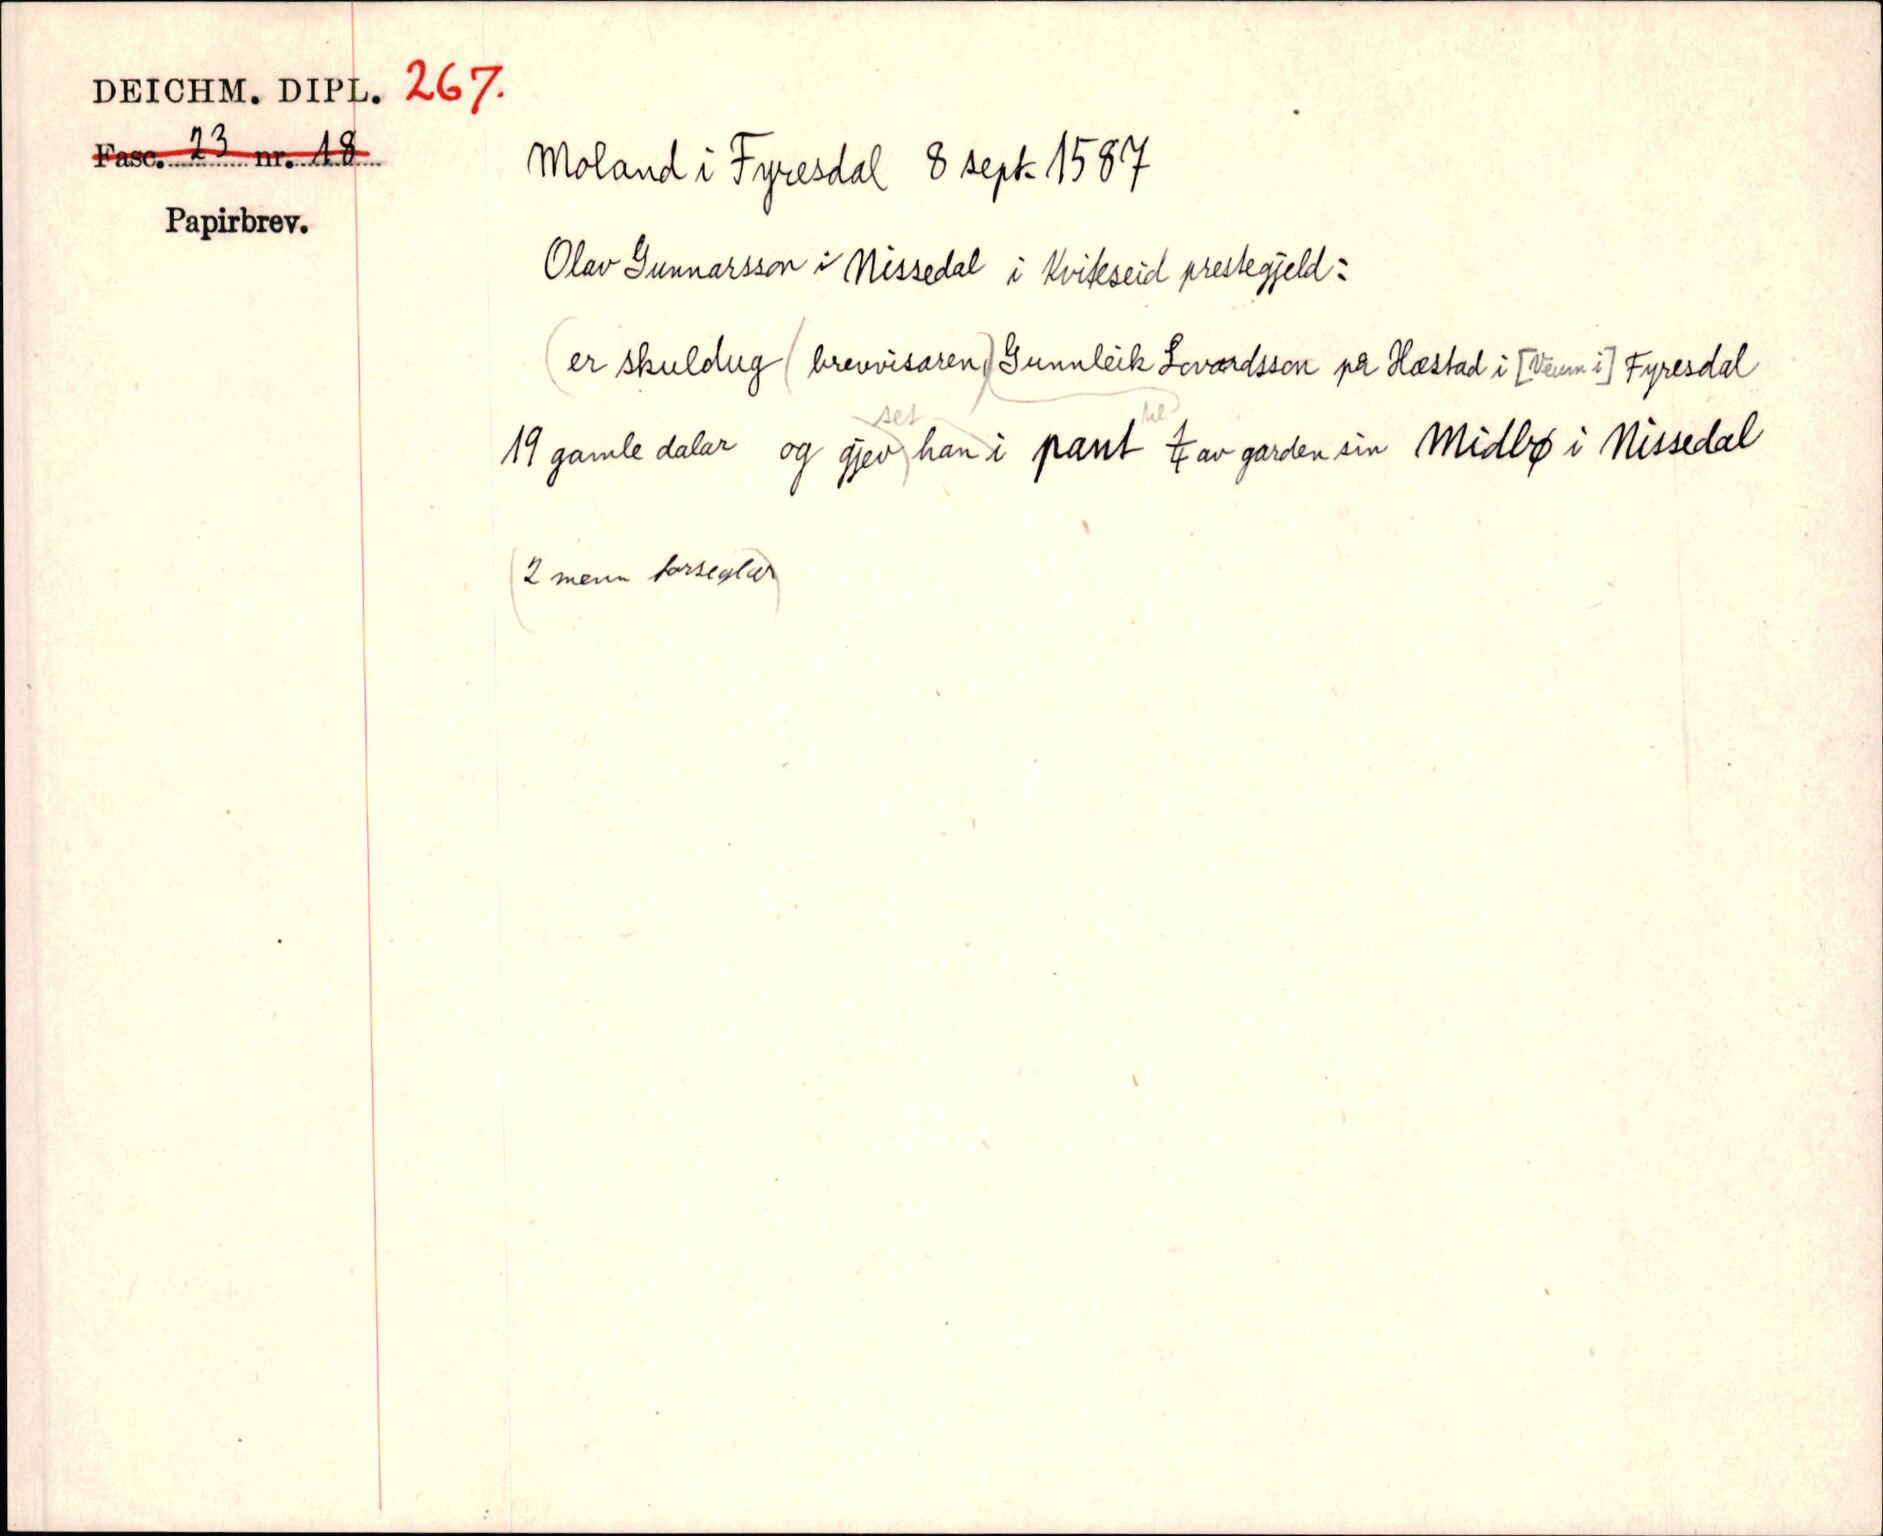 DEICHM. DIPL. 267.
Fasc. 23 nr. 18
Papirbrev.
Moland i Fyresdal 8 sept. 1587
Olav Gunnarsson i Nissedal i Kviteseid prestegjeld:
(er skuldug (brevvisaren) Gunnleik Lovardsson på Hæstad i [Veum i] Fyresdal
set til
19 gamle dalar og gjev han i pant av garden sin Midbø i Nissedal
(2 menn forseglar)